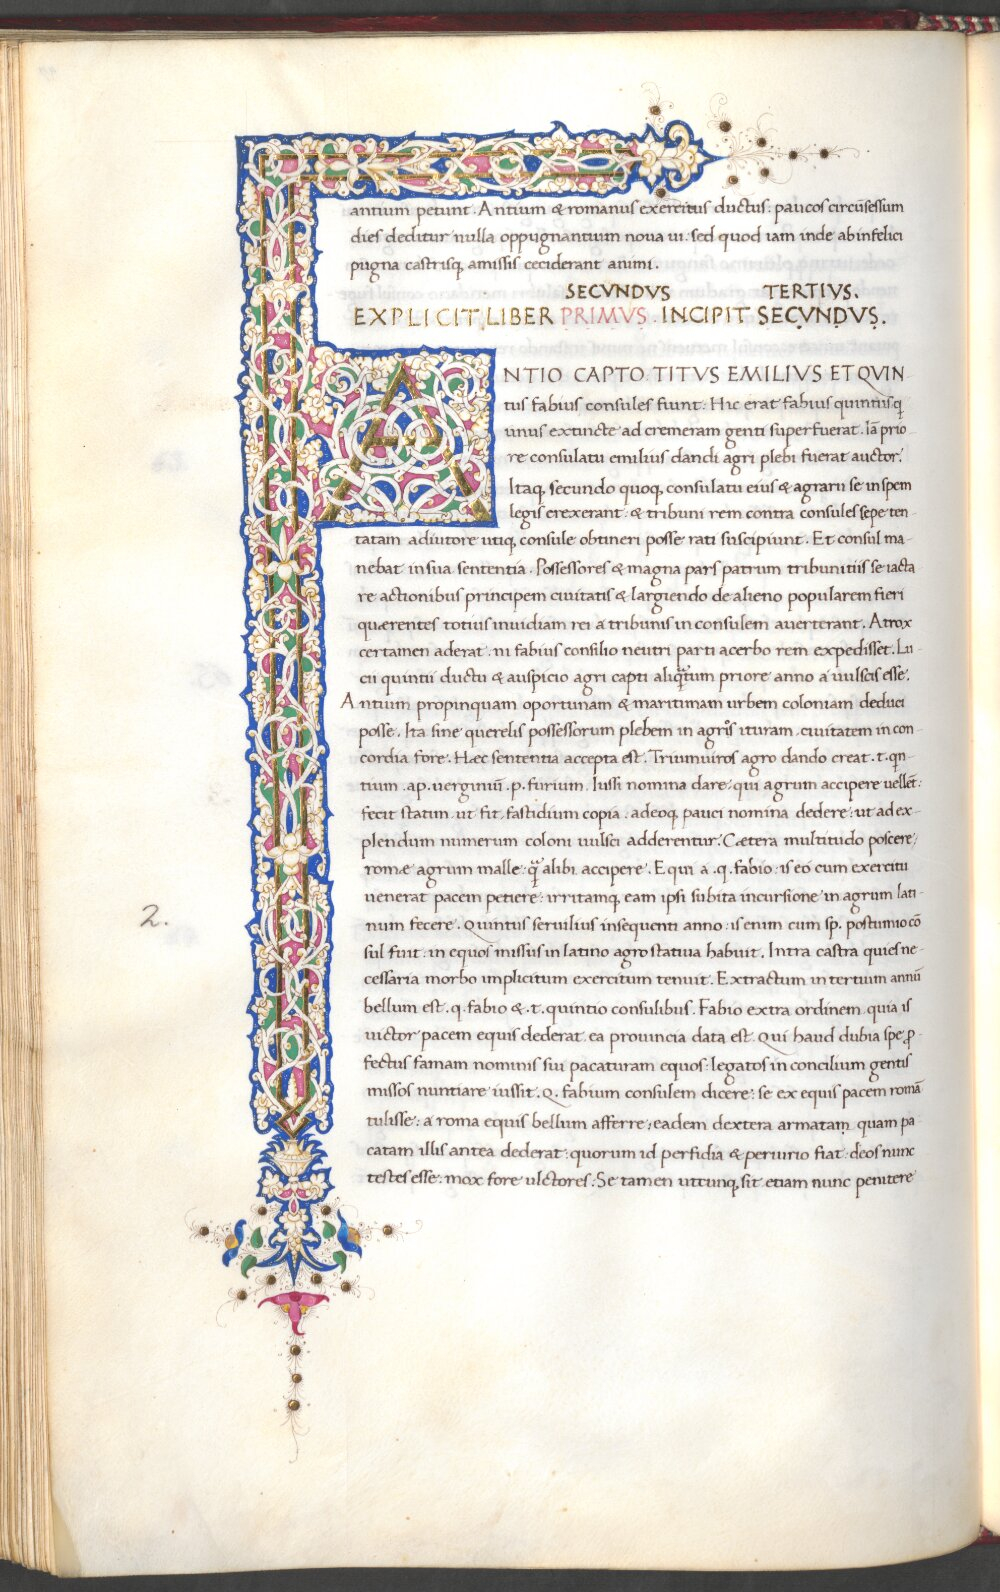 antium petunt. Antium & romanus exercitus ductus. paucos circũsessum
dies deditur nulla oppugnantium noua ui. sed quod iam inde ab infelici
pugna castrisq; amissis ceciderant animi.
SECVNDVS TERTIVS.
EXPLICIT LIBER PRIMVS. INCIPIT SECVNDVS.
ANTIO CAPTO. TITVS EMILIVS ET QVIN-
tus fabius consules fiunt. Hic erat fabius quintius q
unus extincte ad cremeram genti superfuerat. Iã prio
re consulatu emilius dandi agri plebi fuerat auctor.
Itaq; secundo quoq; consulatu eius & agrarii se in spem
legis erexerant: & tribuni rem contra consules sepe ten-
tatam adiutore utiq; consule obtineri posse rati suscipiunt. Et consul ma-
nebat in sua sententia. Possessores & magna pars patrum tribunitiis se iacta
re actionibus principem ciuitatis & largiendo de alieno popularem fieri
quærentes totius inuidiam rei a tribunis in consulem auerterant. Atrox
certamen aderat. ni fabius consilio neutri parti acerbo rem expedisset. Lu-
cii quintii ductu & auspicio agri capti aliq̃tum priore anno a uulscis esse.
Antium propinquam oportunam & maritimam urbem coloniam deduci
posse. Ita sine querelis possessorum plebem in agros ituram. ciuitatem in con-
cordia fore. Hæc sententia accepta est. Triumuiros agro dando creat. t. qn-
tium. ap. uerginiũ. p. furium. Iussi nomina dare: qui agrum accipere uellẽt:
fecit statim ut fit fastidium copia. adeoq; pauci nomina dedere: ut ad ex-
plendum numerum coloni uulsci adderentur. Cætera multitudo poscere
romæ agrum malle: q̃ alibi accipere. Equi a. q. fabio. is eo cum exercitu
uenerat pacem petiere: irritamq; eam ipsi subita incursione in agrum lati-
num fecere. Quintus seruilius insequenti anno: is enim cum sp. postumio cõ
sul fuit: in equos missus in latino agro statiua habuit. Intra castra quies ne-
cessaria morbo implicitum exercitum tenuit. Extractum in tertium annũ
bellum est. q. fabio &. t. quintio consulibus. Fabio extra ordinem. quia is
2.
uictor pacem equis dederat. ea prouincia data est. Qui haud dubia spe p-
fectus famam nominis sui pacaturam equos: legatos in concilium gentis
missos nuntiare iussit. Q. fabium consulem dicere: se ex equis pacem romã
tulisse: a roma equis bellum afferre: eadem dextera armatam quam pa
catam illis antea dederat: quorum id perfidia & periurio fiat: deos nunc
testes esse: mox fore ulctores: Se tamen utcunq; sit etiam nunc penitere